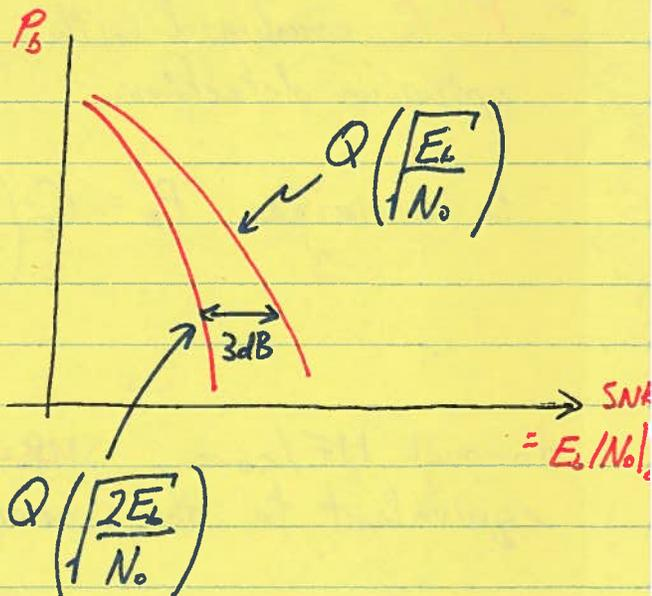 P_b
Q(√(E_b/N_0))
3dB
SNR
= E_b/N_0|
Q(√(2E_b/N_0))